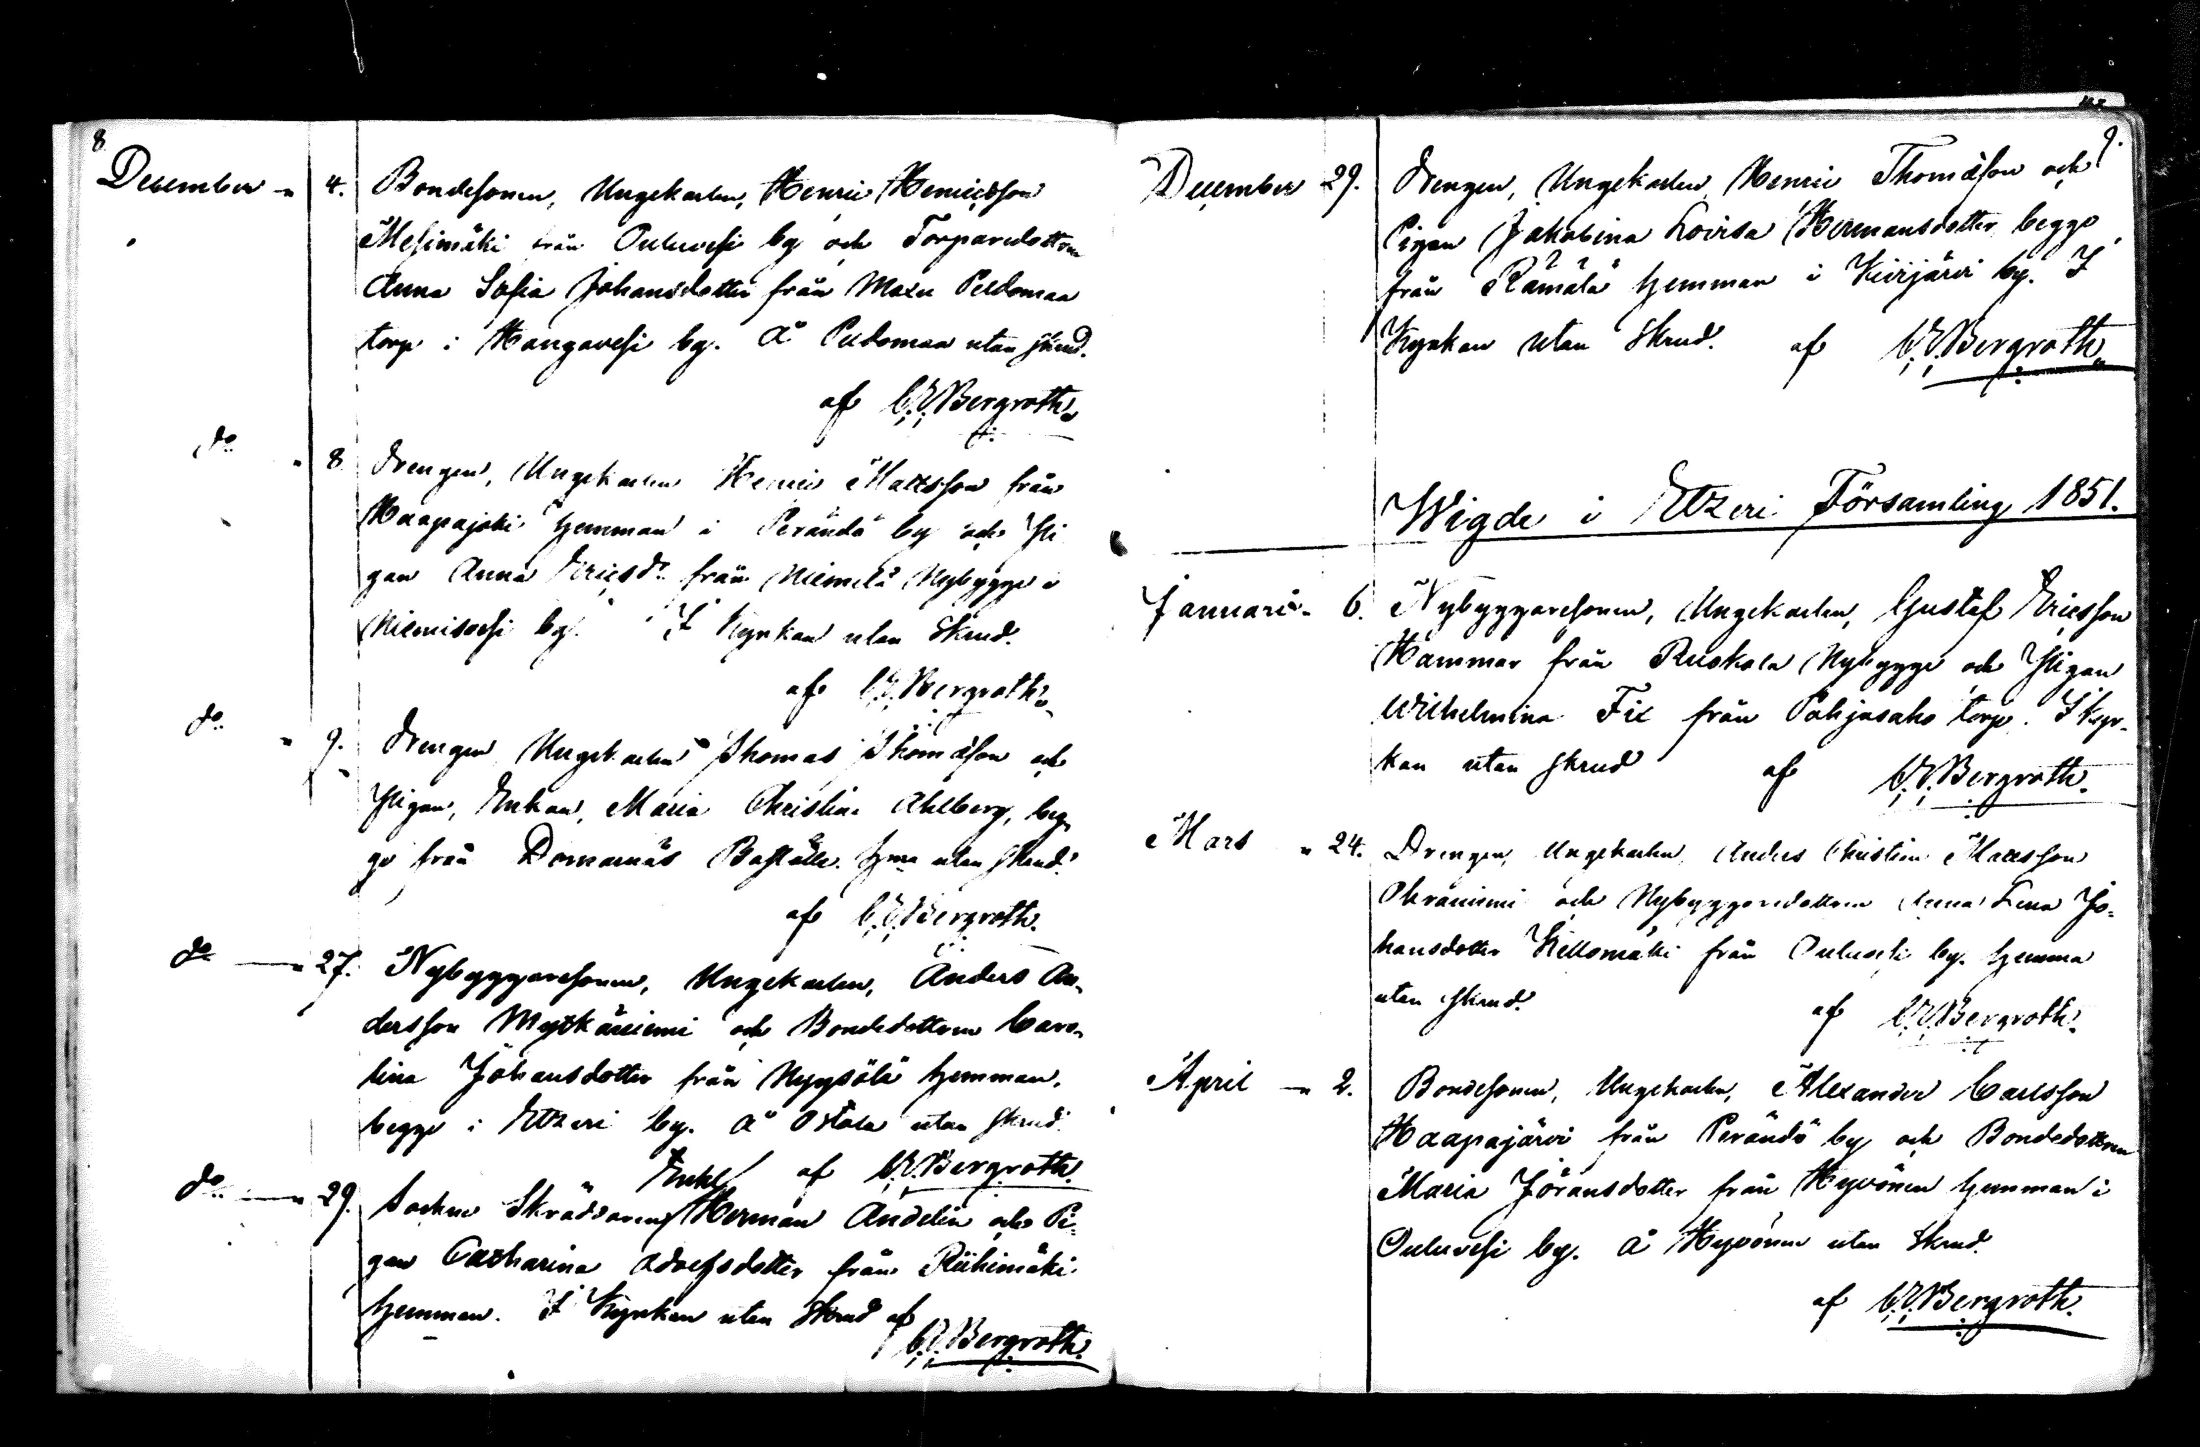 8
December " 4. Bondesonen, Ungekarlen, Henric Henricsson
Mesimäki från Ouluvesi by och Torparedottren
Anna Sofia Johansdotter från Peldomaa
torp i Hangavesi by. Å Peldomaa utan skrud.
af C.E. Bergroth.
do " 8 Drengen, Ungekarlen Henric Mattsson från
Haapajoki hemman i Perändä by och Pi
gan Anna Ericsdr från Niemelä Nybygge i
Niemisvesi by. I Kyrkan utan Skrud.
af C.E. Bergroth.
do " 9. Drengen Ungekarlen Thomas Thomasson och
Pigan, Enkan, Maria Christina Ahlberg, beg
ge från Domarnäs Boställe. Hma utan skrud.
af C.E. Bergroth.
do " 27. Nybyggaresonen, Ungekarlen, Anders An-
dersson Myzkäniemi och Bondedottren Caro-
lina Johansdotter från Nyysölä hemman,
begge i Etzeri by. Å Ostola utan skrud.
af C.E. Bergroth.
do " 29. Sockne Skräddaren Enkl. Herman Andelin och Pi-
gan Catharina Adolfsdotter från Riihimäki
hemman. I Kyrkan utan Skrud af
C.E. Bergroth.
9.
December 29. Drengen, Ungekarlen, Henric Thomasson och
Pigan Jakobina Lovisa Hermansdotter, begge
från Rämälä hemman i Kivijärvi by. I
Kyrkan utan Skrud. af C.E. Bergroth.
Wigde i Etzeri Församling 1851.
Januari " 6. Nybyggaresonen, Ungekarlen, Gustaf Ericsson
Hammar från Ruokola Nybygge och Pigan
Wilhelmina Fix från Pohjasaho torp. I Kyr-
kan utan skrud af C.E. Bergroth.
Mars " 24. Drengen, Ungekarlen, Anders Christian Mattsson
Ohraniemi och Nybyggaredottren Anna Lena Jo-
hansdotter Kellomäki från Ouluvesi by. Hemma
utan skrud. af C.E. Bergroth.
April " 2. Bondesonen, Ungekarlen, Alexander Carlsson
Haapajärvi från Perändä by och Bondedottren
Maria Jöransdotter från Hyvönen hemman i
Ouluvesi by. Å Hyvönen utan Skrud.
af C.E. Bergroth.